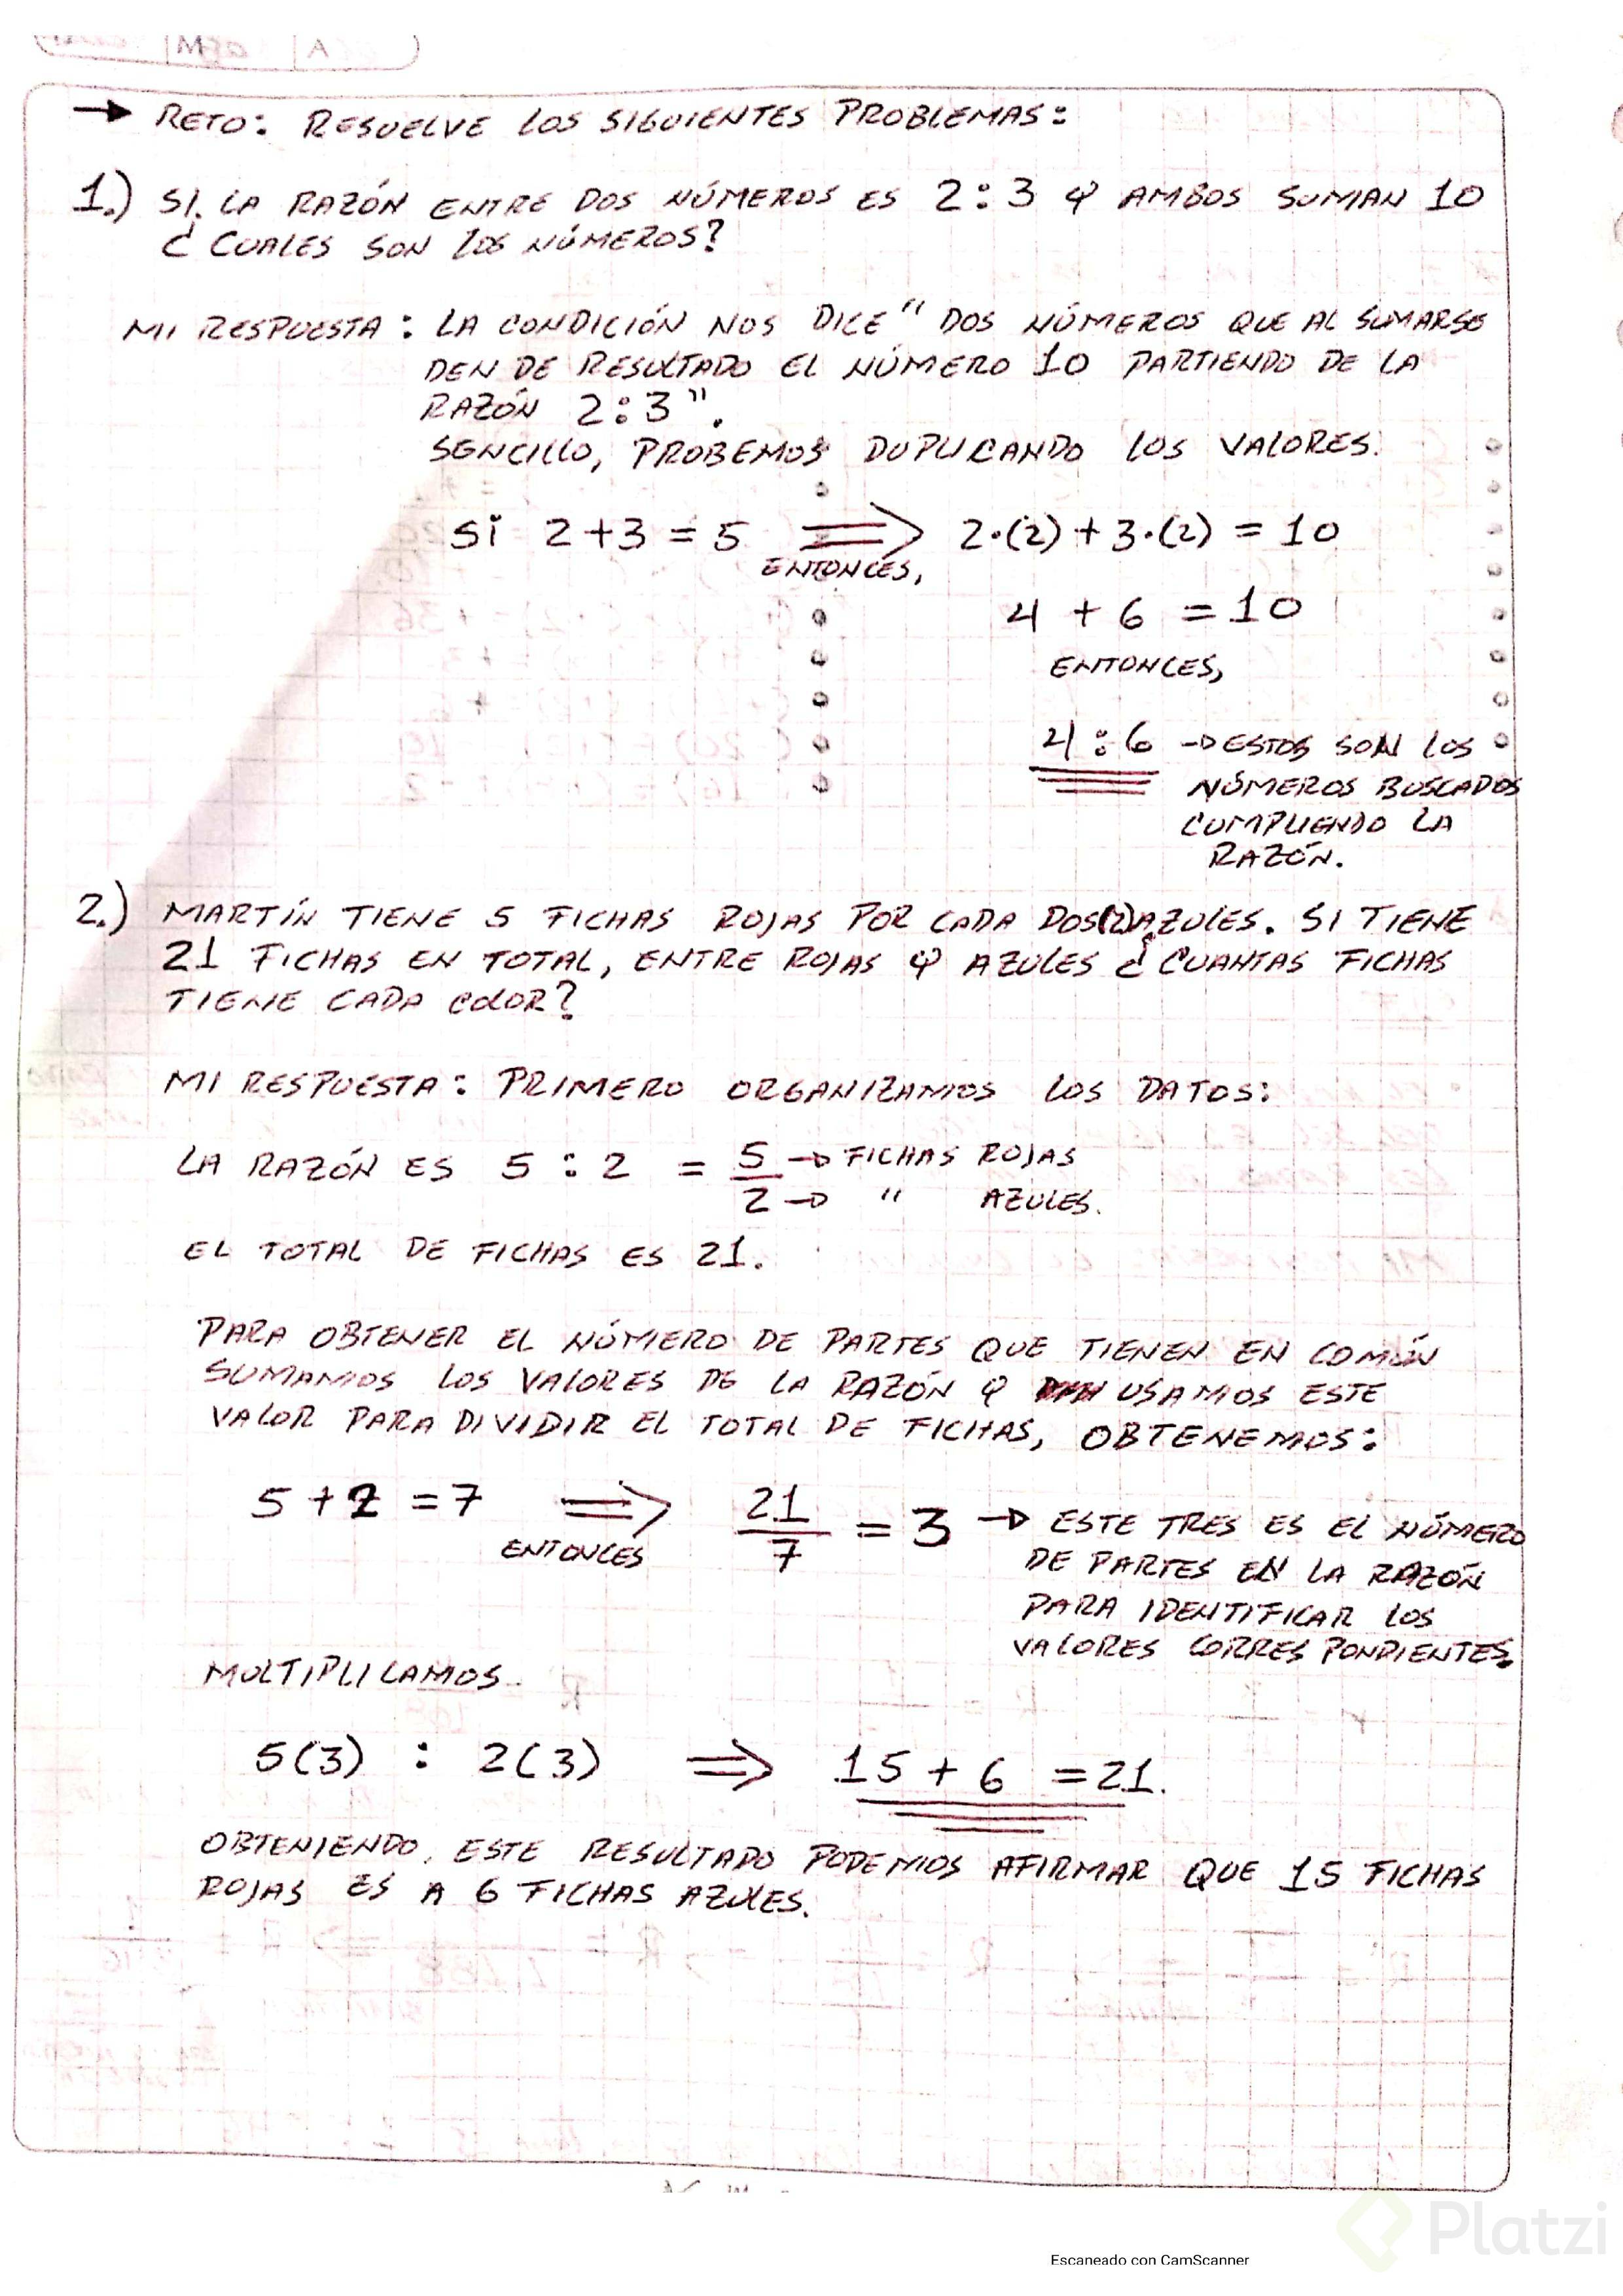 → RETO: RESUELVE LOS SIGUIENTES PROBLEMAS:
1.) SI LA RAZÓN ENTRE DOS NÚMEROS ES 2:3 Y AMBOS SUMAN 10
¿CUALES SON LOS NÚMEROS?
MI RESPUESTA: LA CONDICIÓN NOS DICE " DOS NÚMEROS QUE AL SUMARSE
DEN DE RESULTADO EL NÚMERO 10 PARTIENDO DE LA
RAZÓN 2:3".
SENCILLO, PROBEMOS DUPLICANDO LOS VALORES.
si 2+3=5 ⟹ 2·(2)+3·(2) = 10
ENTONCES,
4 + 6 = 10
ENTONCES,
4:6 → ESTOS SON LOS
NÚMEROS BUSCADOS
CUMPLIENDO LA
RAZÓN.
2.) MARTÍN TIENE 5 FICHAS ROJAS POR CADA DOS(2)AZULES. SI TIENE
21 FICHAS EN TOTAL, ENTRE ROJAS Y AZULES ¿CUANTAS FICHAS
TIENE CADA COLOR?
MI RESPUESTA: PRIMERO ORGANIZAMOS LOS DATOS:
LA RAZÓN ES 5 : 2 = 5 → FICHAS ROJAS
2 → " AZULES.
EL TOTAL DE FICHAS ES 21.
PARA OBTENER EL NÚMERO DE PARTES QUE TIENEN EN COMÚN
SUMAMOS LOS VALORES DE LA RAZÓN Y USAMOS ESTE
VALOR PARA DIVIDIR EL TOTAL DE FICHAS, OBTENEMOS:
5+2=7 ⟹ 21/7 = 3 → ESTE TRES ES EL NÚMERO
ENTONCES
DE PARTES EN LA RAZÓN
PARA IDENTIFICAR LOS
VALORES CORRESPONDIENTES.
MULTIPLICAMOS
5(3) : 2(3) ⟹ 15 + 6 = 21.
OBTENIENDO, ESTE RESULTADO PODEMOS AFIRMAR QUE 15 FICHAS
ROJAS ES A 6 FICHAS AZULES.
Platzi
Escaneado con CamScanner